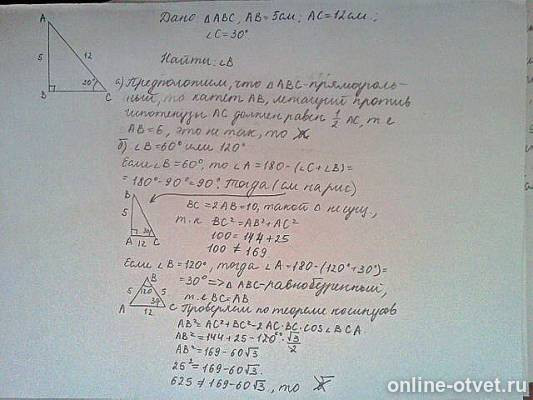 Дано △ABC, AB=5см; AC=12см;
∠C=30°
Найти: ∠B
A
5
12
30°
B
C
а) Предположим, что △ABC-прямоуголь-
ный, то катет AB, лежащий против
гипотенузы AC должен равен 1/2 AC, т.е
AB=6, это не так, то
б) ∠B=60° или 120°
Если ∠B=60°, то ∠A=180-(∠C+∠B)=
=180°-90°=90°. Тогда (см на рис)
B
5
30
A 12 C
BC=2AB=10, такой △ не сущ.,
т.к BC²=AB²+AC²
100=144+25
100≠169
Если ∠B=120°, тогда ∠A=180-(120°+30°)=
=30° => △ABC-равнобедренный,
т.е BC=AB
B
5 120 5
30
A 12 C
Проверяем по теореме косинусов
AB²=AC²+BC²-2AC·BC·cos∠BCA
AB²=144+25-120·√3/2
AB²=169-60√3
25²=169-60√3
625≠169-60√3, то
online-otvet.ru